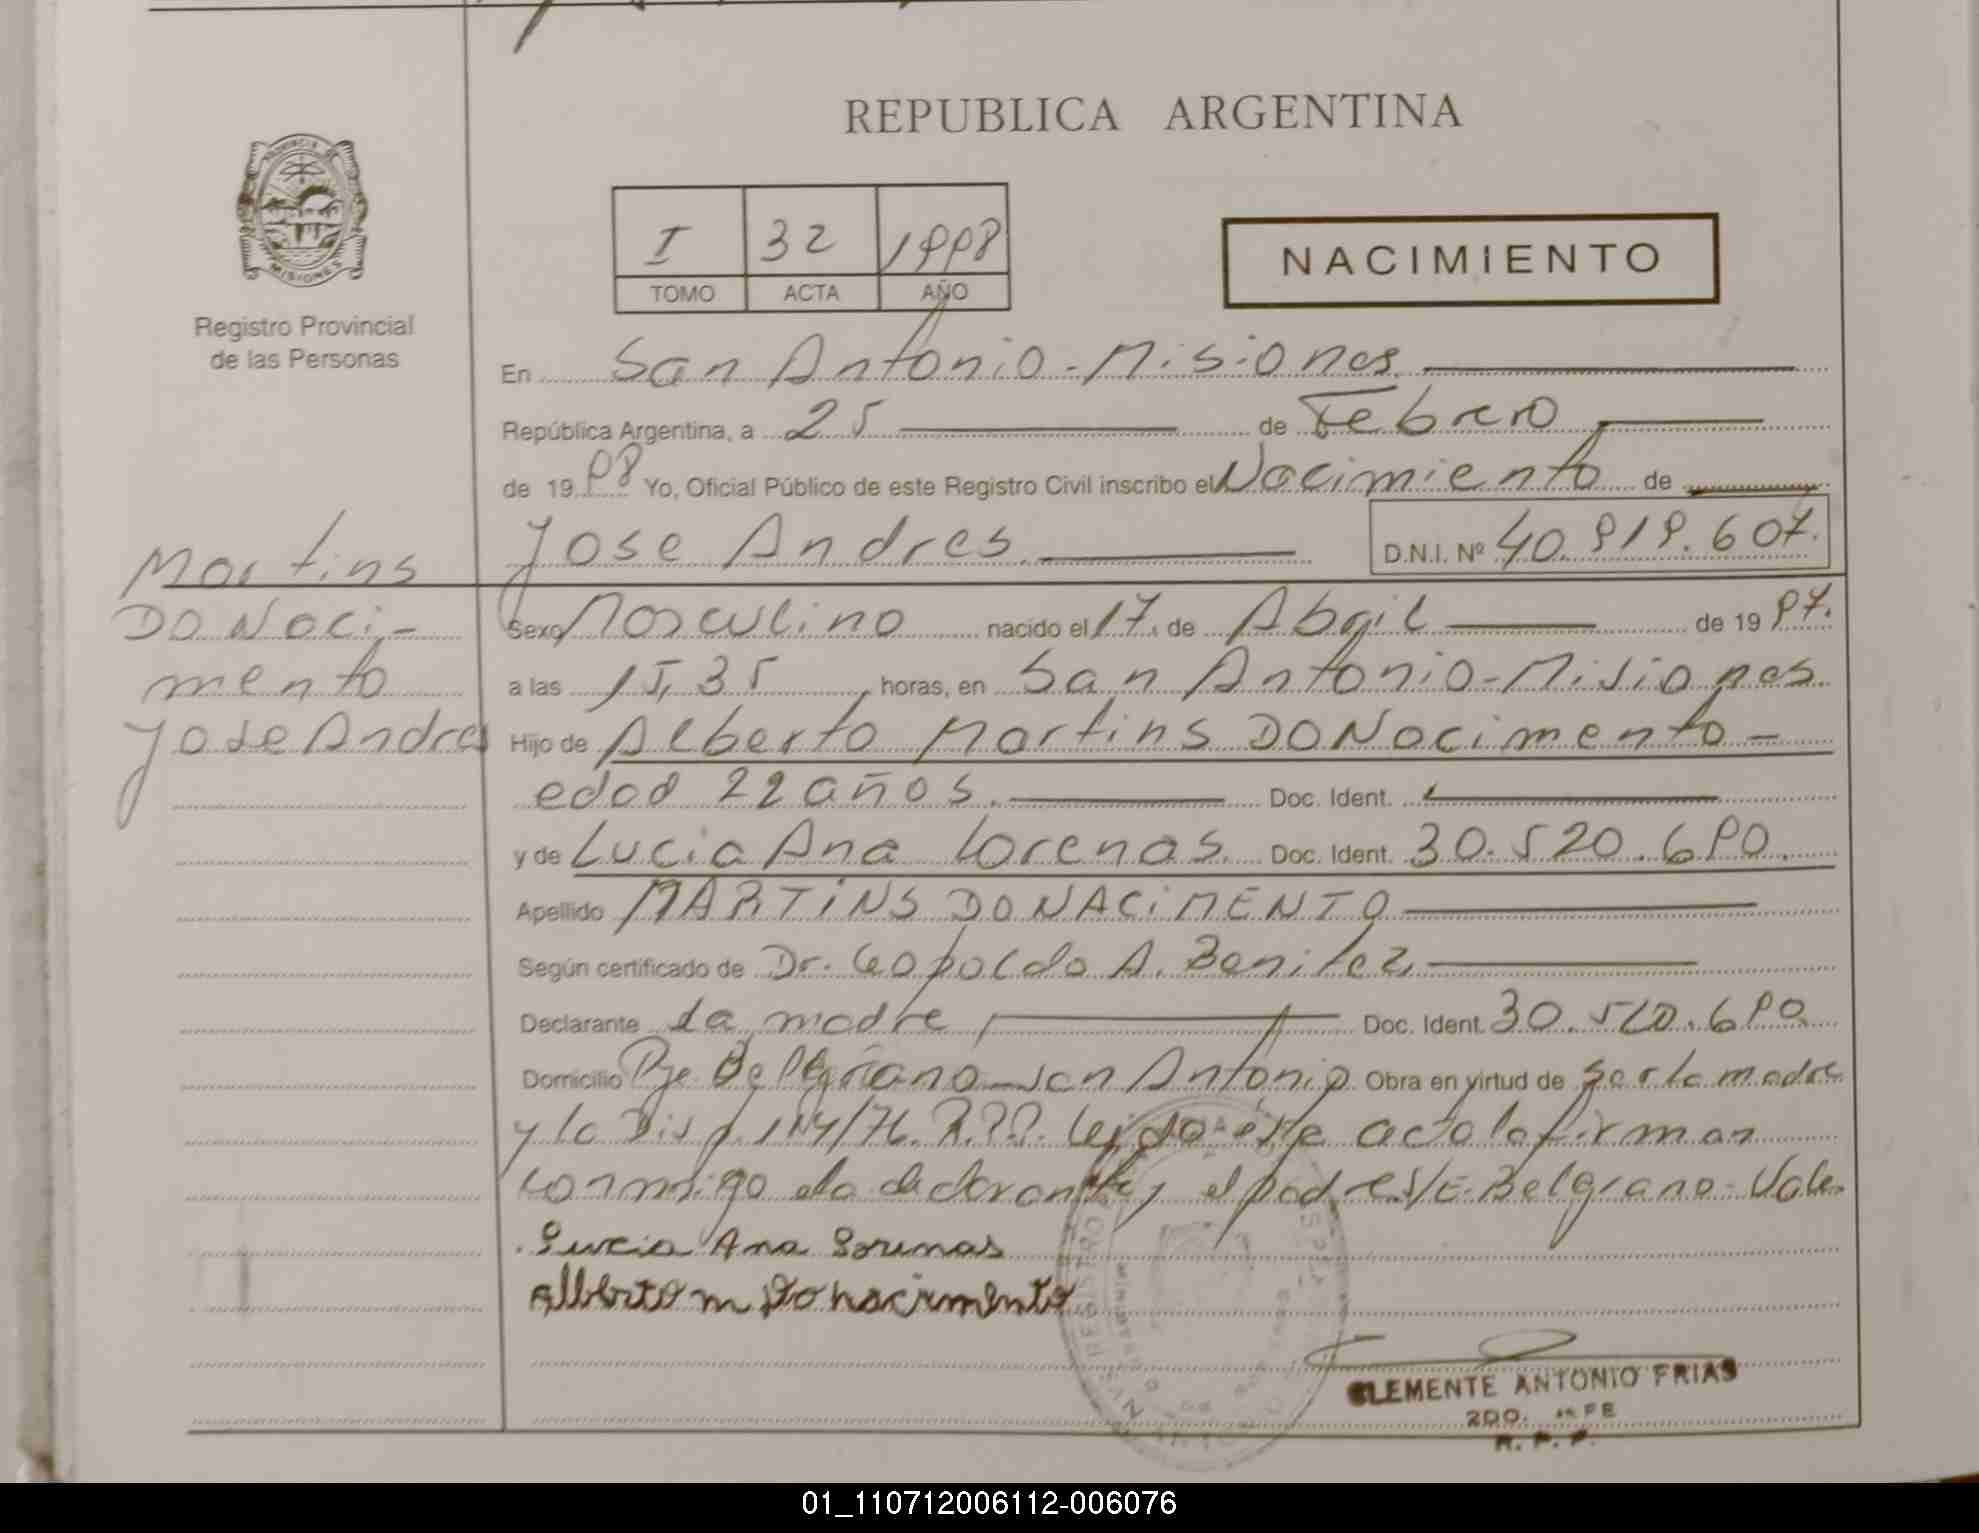 REPUBLICA ARGENTINA
PROVINCIA DE
MISIONES
Registro Provincial
de las Personas
I 32 1998
TOMO ACTA AÑO
NACIMIENTO
En San Antonio - Misiones
República Argentina, a 25 de Febrero
de 1998 Yo, Oficial Público de este Registro Civil inscribo el Nacimiento de
Jose Andres D.N.I. Nº 40.919.607.
Martins
DO Naci-
mento
Jose Andres
Sexo Masculino nacido el 17 de Abril de 1997.
a las 15,35 horas, en San Antonio - Misiones.
Hijo de Alberto Martins DO Nacimento -
edad 22 años. Doc. Ident.
y de Lucia Ana Lorenas Doc. Ident. 30.520.690.
Apellido MARTiNS DO NACiMENTO
Según certificado de Dr. Leopoldo A. Benitez
Declarante La madre Doc. Ident. 30.520.690
Domicilio Pje Belgrano San Antonio Obra en virtud de ser la madre
y la Disp. 114/76. R.P.P. Leido este acta la firman
conmigo la declarante y el padre S/E. Belgrano - Vale
Lucia Ana Lorenas
Alberto m Do nacimento
CLEMENTE ANTONIO FRIAS
2DO. JEFE
R. P. P.
01_110712006112-006076